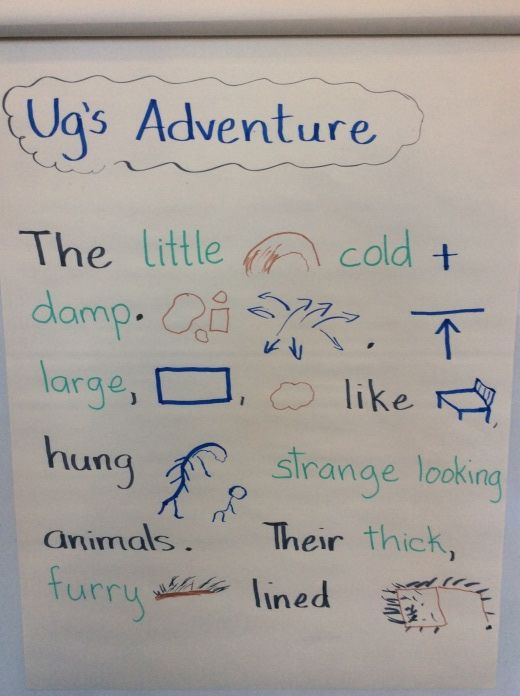 Ug's Adventure
The little cold +
damp. .
large, , like ,
hung strange looking
animals. Their thick,
furry lined .